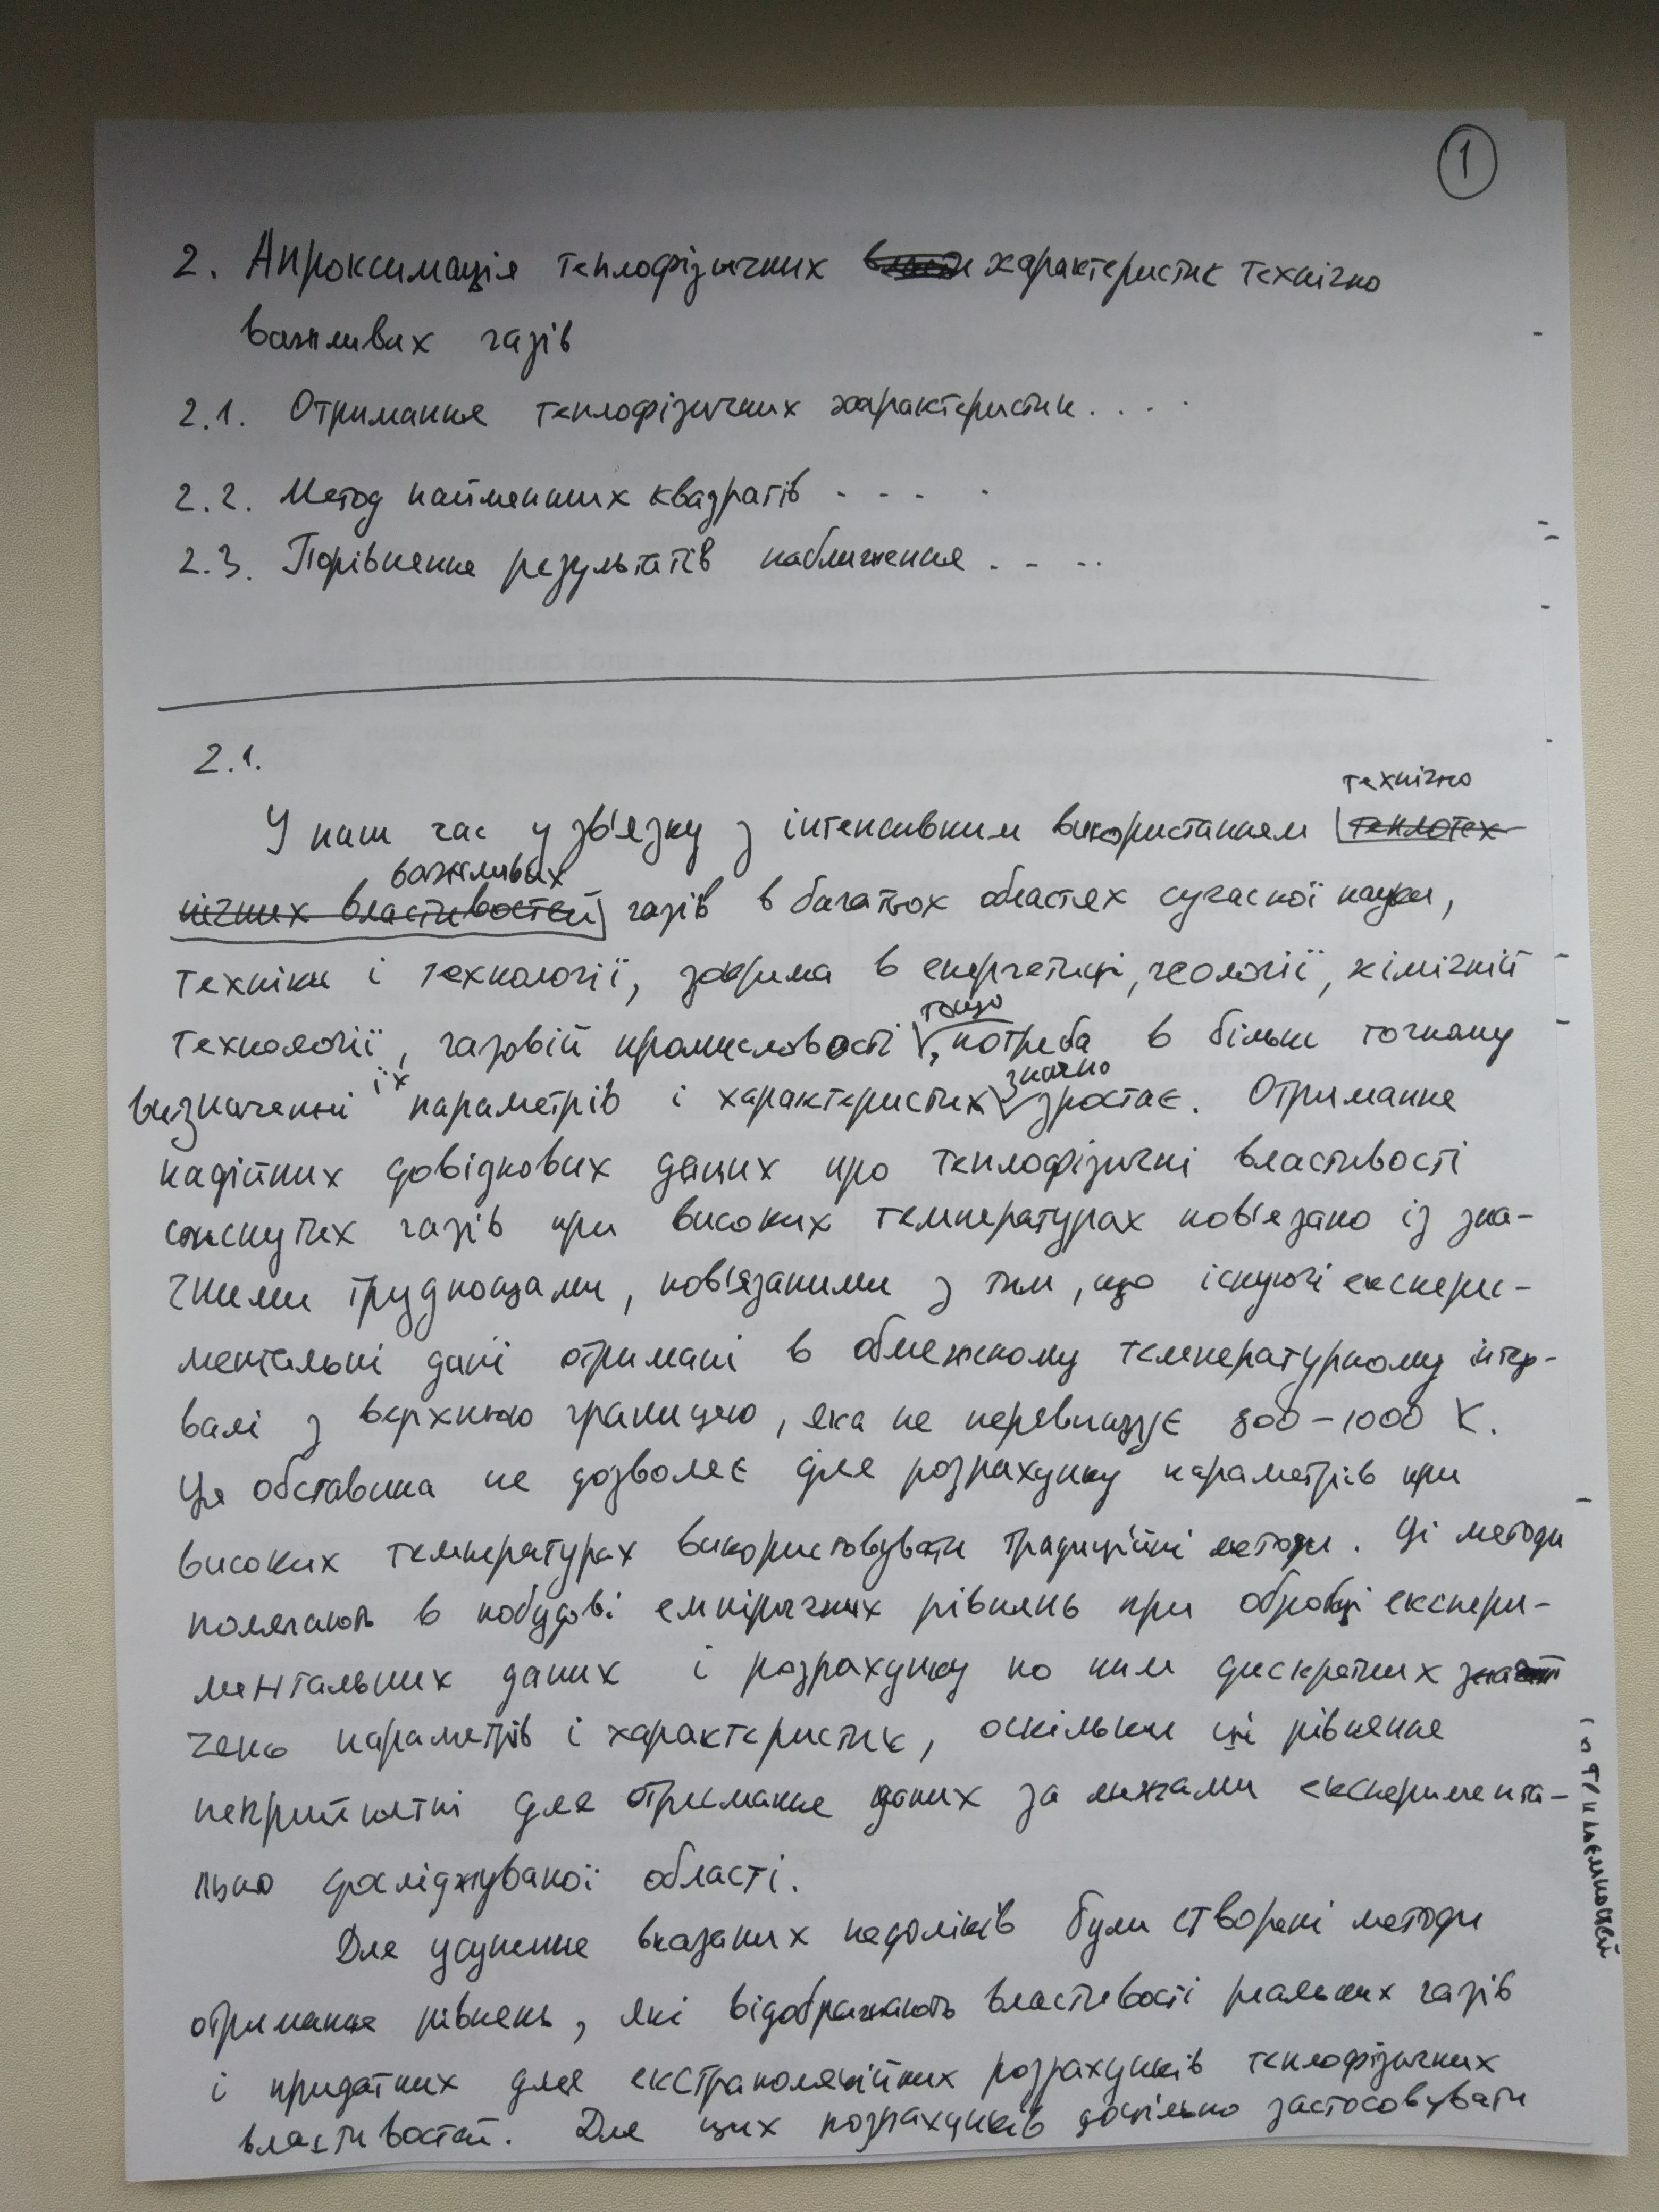 1
2. Апроксимація теплофізичних характеристик технічно
важливих газів
2.1. Отримання теплофізичних характеристик . . . .
2.2. Метод найменших квадратів . . . .
2.3. Порівняння результатів наближення . . . .
2.1.
технічно
У наш час у зв'язку з інтенсивним використанням теплотех-
важливих
нічних властивостей газів в багатьох областях сучасної науки,
техніки і технології, зокрема в енергетиці, геології, хімічній
тощо
технології, газовій промисловості, потреба в більш точному
їх значно
визначенні параметрів і характеристик зростає. Отримання
надійних довідкових даних про теплофізичні властивості
стиснутих газів при високих температурах пов'язано із зна-
чними труднощами, пов'язаними з тим, що існуючі експери-
ментальні дані отримані в обмеженому температурному інтер-
валі з верхньою границею, яка не перевищує 800-1000 К.
Ця обставина не дозволяє для розрахунку параметрів при
високих температурах використовувати традиційні методи. Ці методи
полягають в побудові емпіричних рівнянь при обробці експери-
ментальних даних і розрахунку по ним дискретних зна
чень параметрів і характеристик, оскільки ці рівняння
неприйнятні для отримання даних за межами експеримента-
льно досліджуваної області.
Для усунення вказаних недоліків були створені методи
отримання рівнянь, які відображають властивості реальних газів
і придатних для екстраполяційних розрахунків теплофізичних
властивостей. Для цих розрахунків доцільно застосовувати